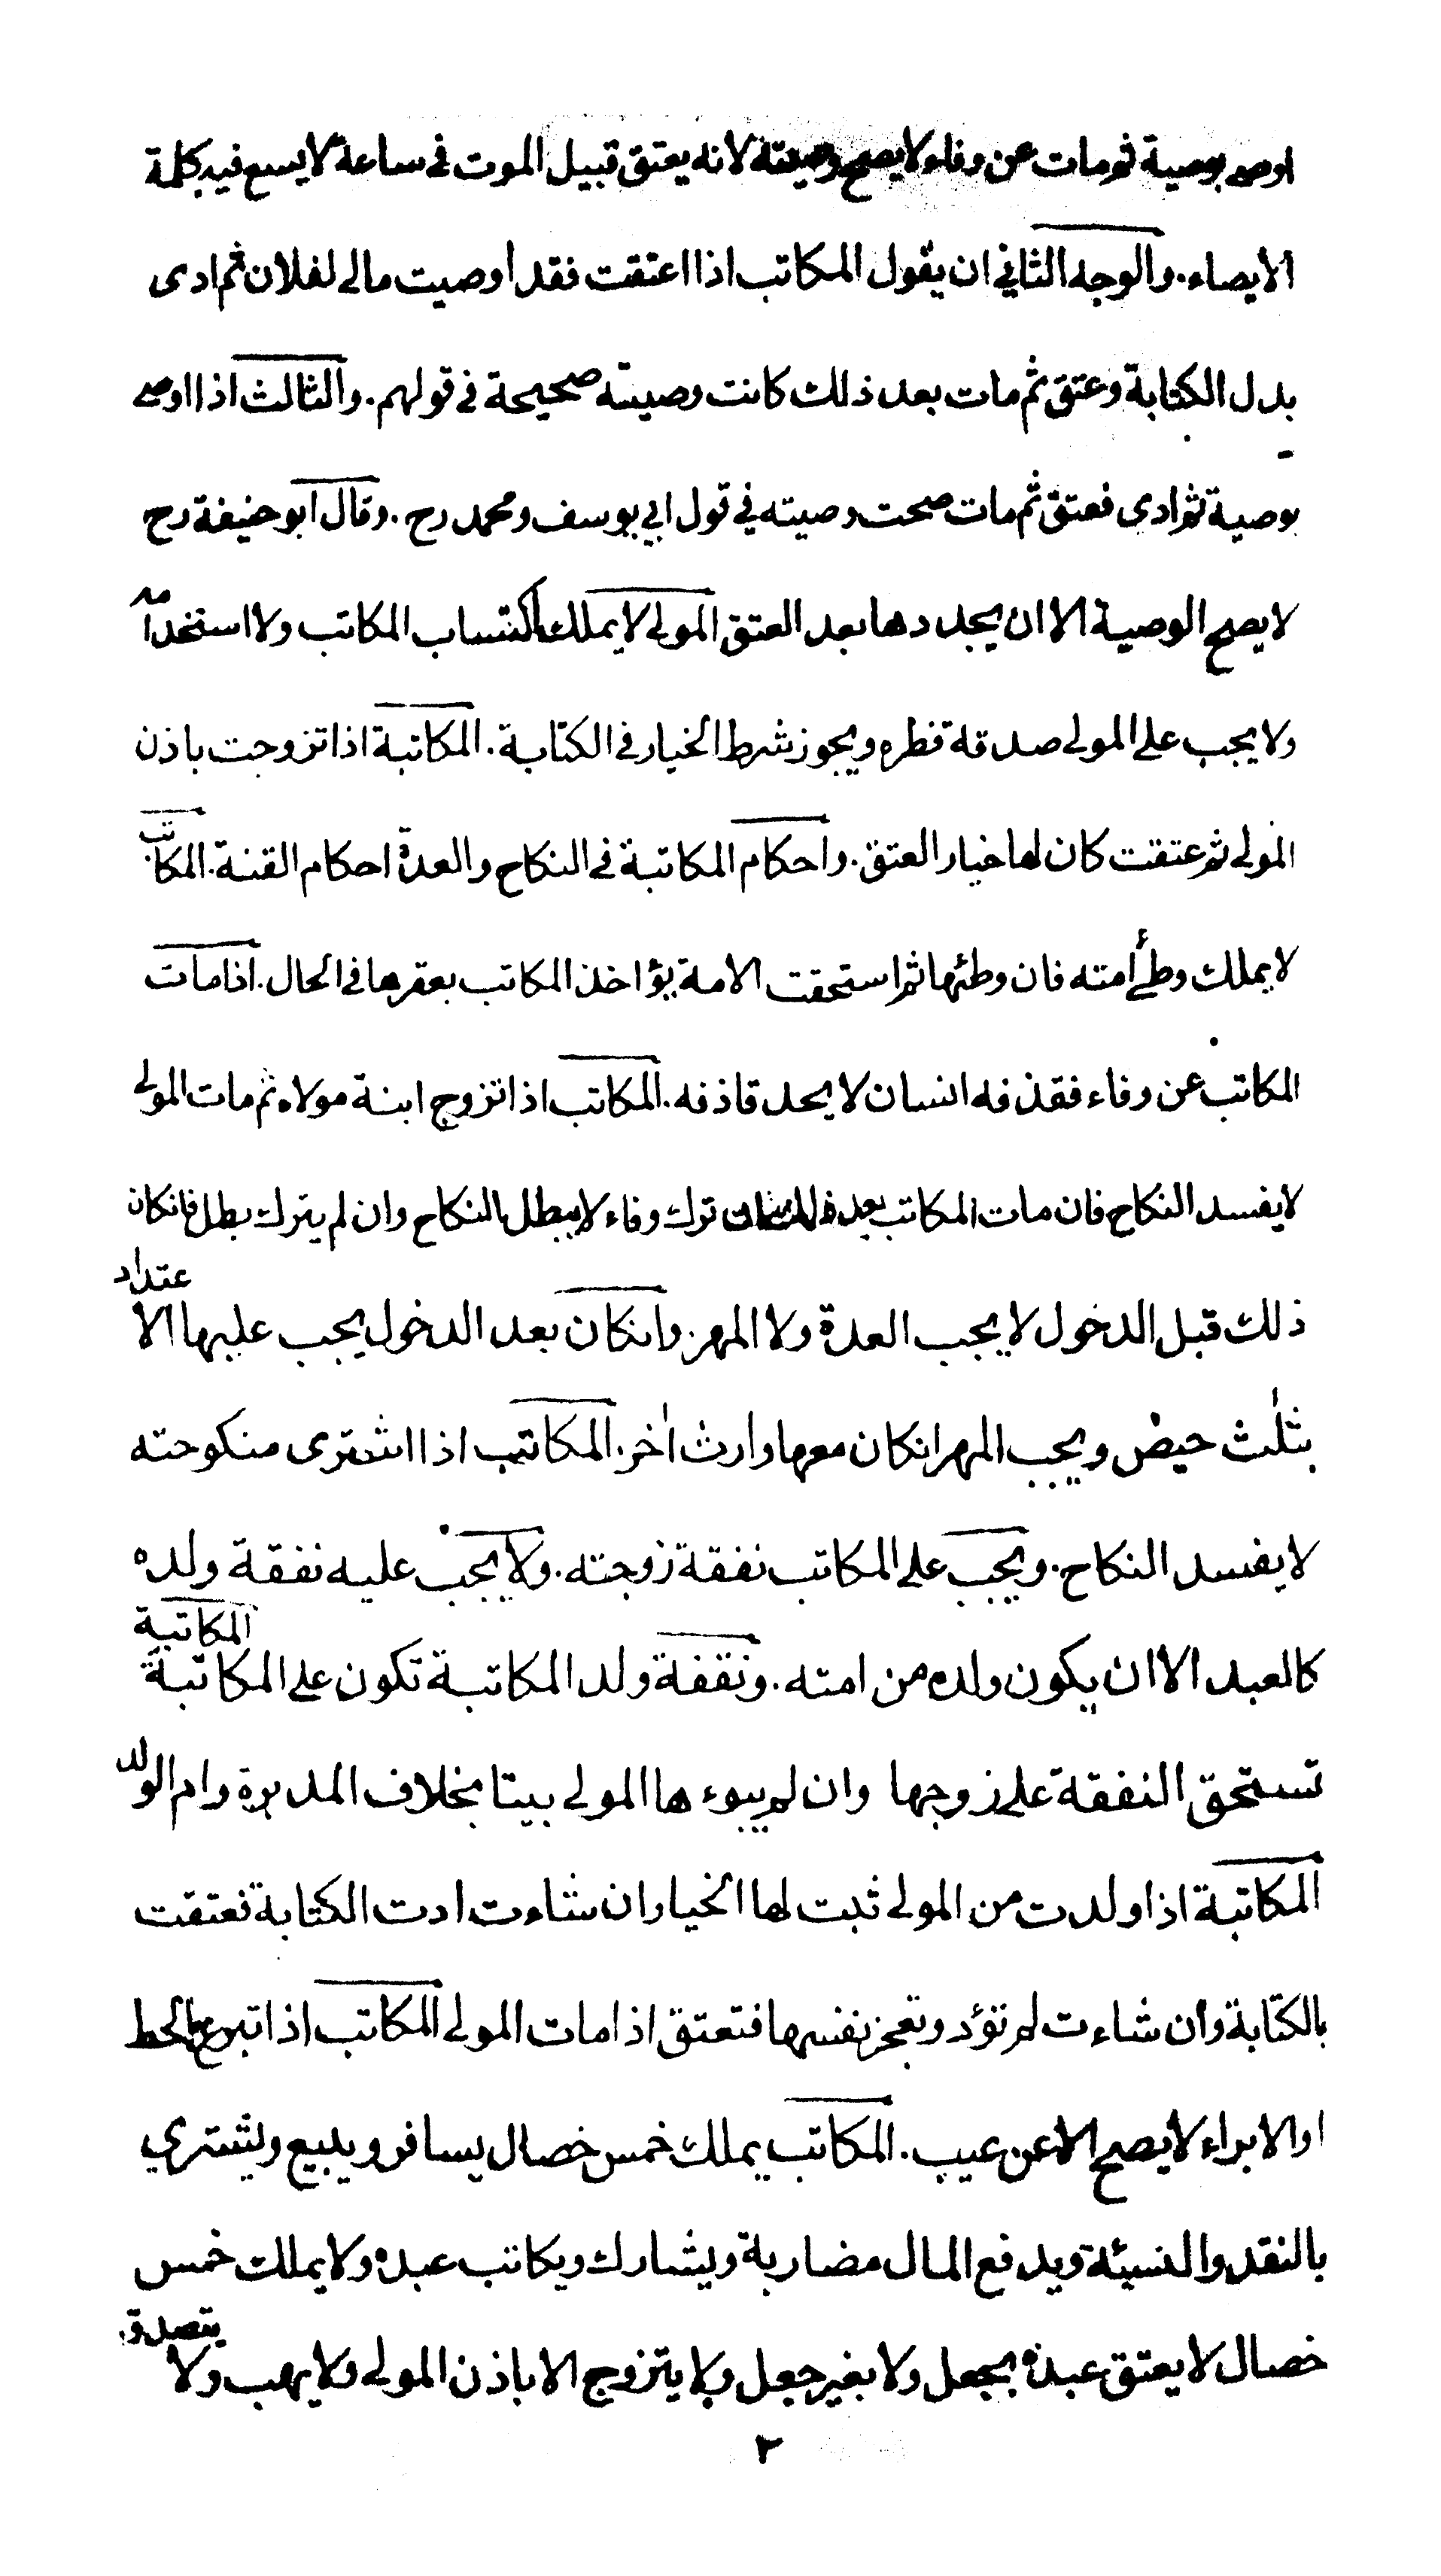 اوصى بوصية ثم مات عن وفاء لا يصح وصيته لانه يعتق قبيل الموت في ساعة لا يسع فيه كلمة
الايصاء. والوجه الثاني ان يقول المكاتب اذا اعتقت فقد اوصيت مالي لفلان ثم ادى
بدل الكتابة وعتق ثم مات بعد ذلك كانت وصيته صحيحة في قولهم. والثالث اذا اوصى
بوصية ثم ادى فعتق ثم مات صحت وصيته في قول ابي يوسف ومحمد رح. وقال ابو حنيفة رح
لا يصح الوصية الا ان يجددها بعد العتق المولى لا يملك اكتساب المكاتب ولا استخدامه
ولا يجب على المولى صدقة فطره ويجوز شرط الخيار في الكتابة. المكاتبة اذا تزوجت باذن
المولى ثم عتقت كان لها خيار العتق. واحكام المكاتبة في النكاح والعدة احكام القنة. المكاتب
لا يملك وطئ أمته فان وطئها ثم استحقت الامة يؤاخذ المكاتب بعقرها في الحال. اذا مات
المكاتب عن وفاء فقذفه انسان لا يحد قاذفه. المكاتب اذا تزوج ابنة مولاه ثم مات المولى
لا يفسد النكاح فان مات المكاتب بعد ذلك ترك وفاء لا يبطل النكاح وان لم يترك بطل فانكان
ذلك قبل الدخول لا يجب العدة ولا المهر. وانكان بعد الدخول يجب عليها الاعتداد
بثلث حيض ويجب المهر انكان معها وارث اخر. المكاتب اذا اشترى منكوحته
لا يفسد النكاح. ويجب على المكاتب نفقة زوجته. ولا يجب عليه نفقة ولده
كالعبد الا ان يكون ولده من امته. ونفقة ولد المكاتبة تكون على المكاتبة المكاتبة
تستحق النفقة على زوجها وان لم يبوءها المولى بيتا بخلاف المدبرة وام الولد
المكاتبة اذا ولدت من المولى ثبت لها الخيار ان شاءت ادت الكتابة فعتقت
بالكتابة وان شاءت لم تؤد وتعجز نفسها فتعتق اذا مات المولى المكاتب اذا تبرع بالحط
او الابراء لا يصح الا عن عيب. المكاتب يملك خمس خصال يسافر ويبيع ويشتري
بالنقد والنسيئة ويدفع المال مضاربة ويشارك ويكاتب عبده ولا يملك خمس
خصال لا يعتق عبده بجعل ولا بغير جعل ولا يتزوج الا باذن المولى ولا يهب ولا يتصدق
٣